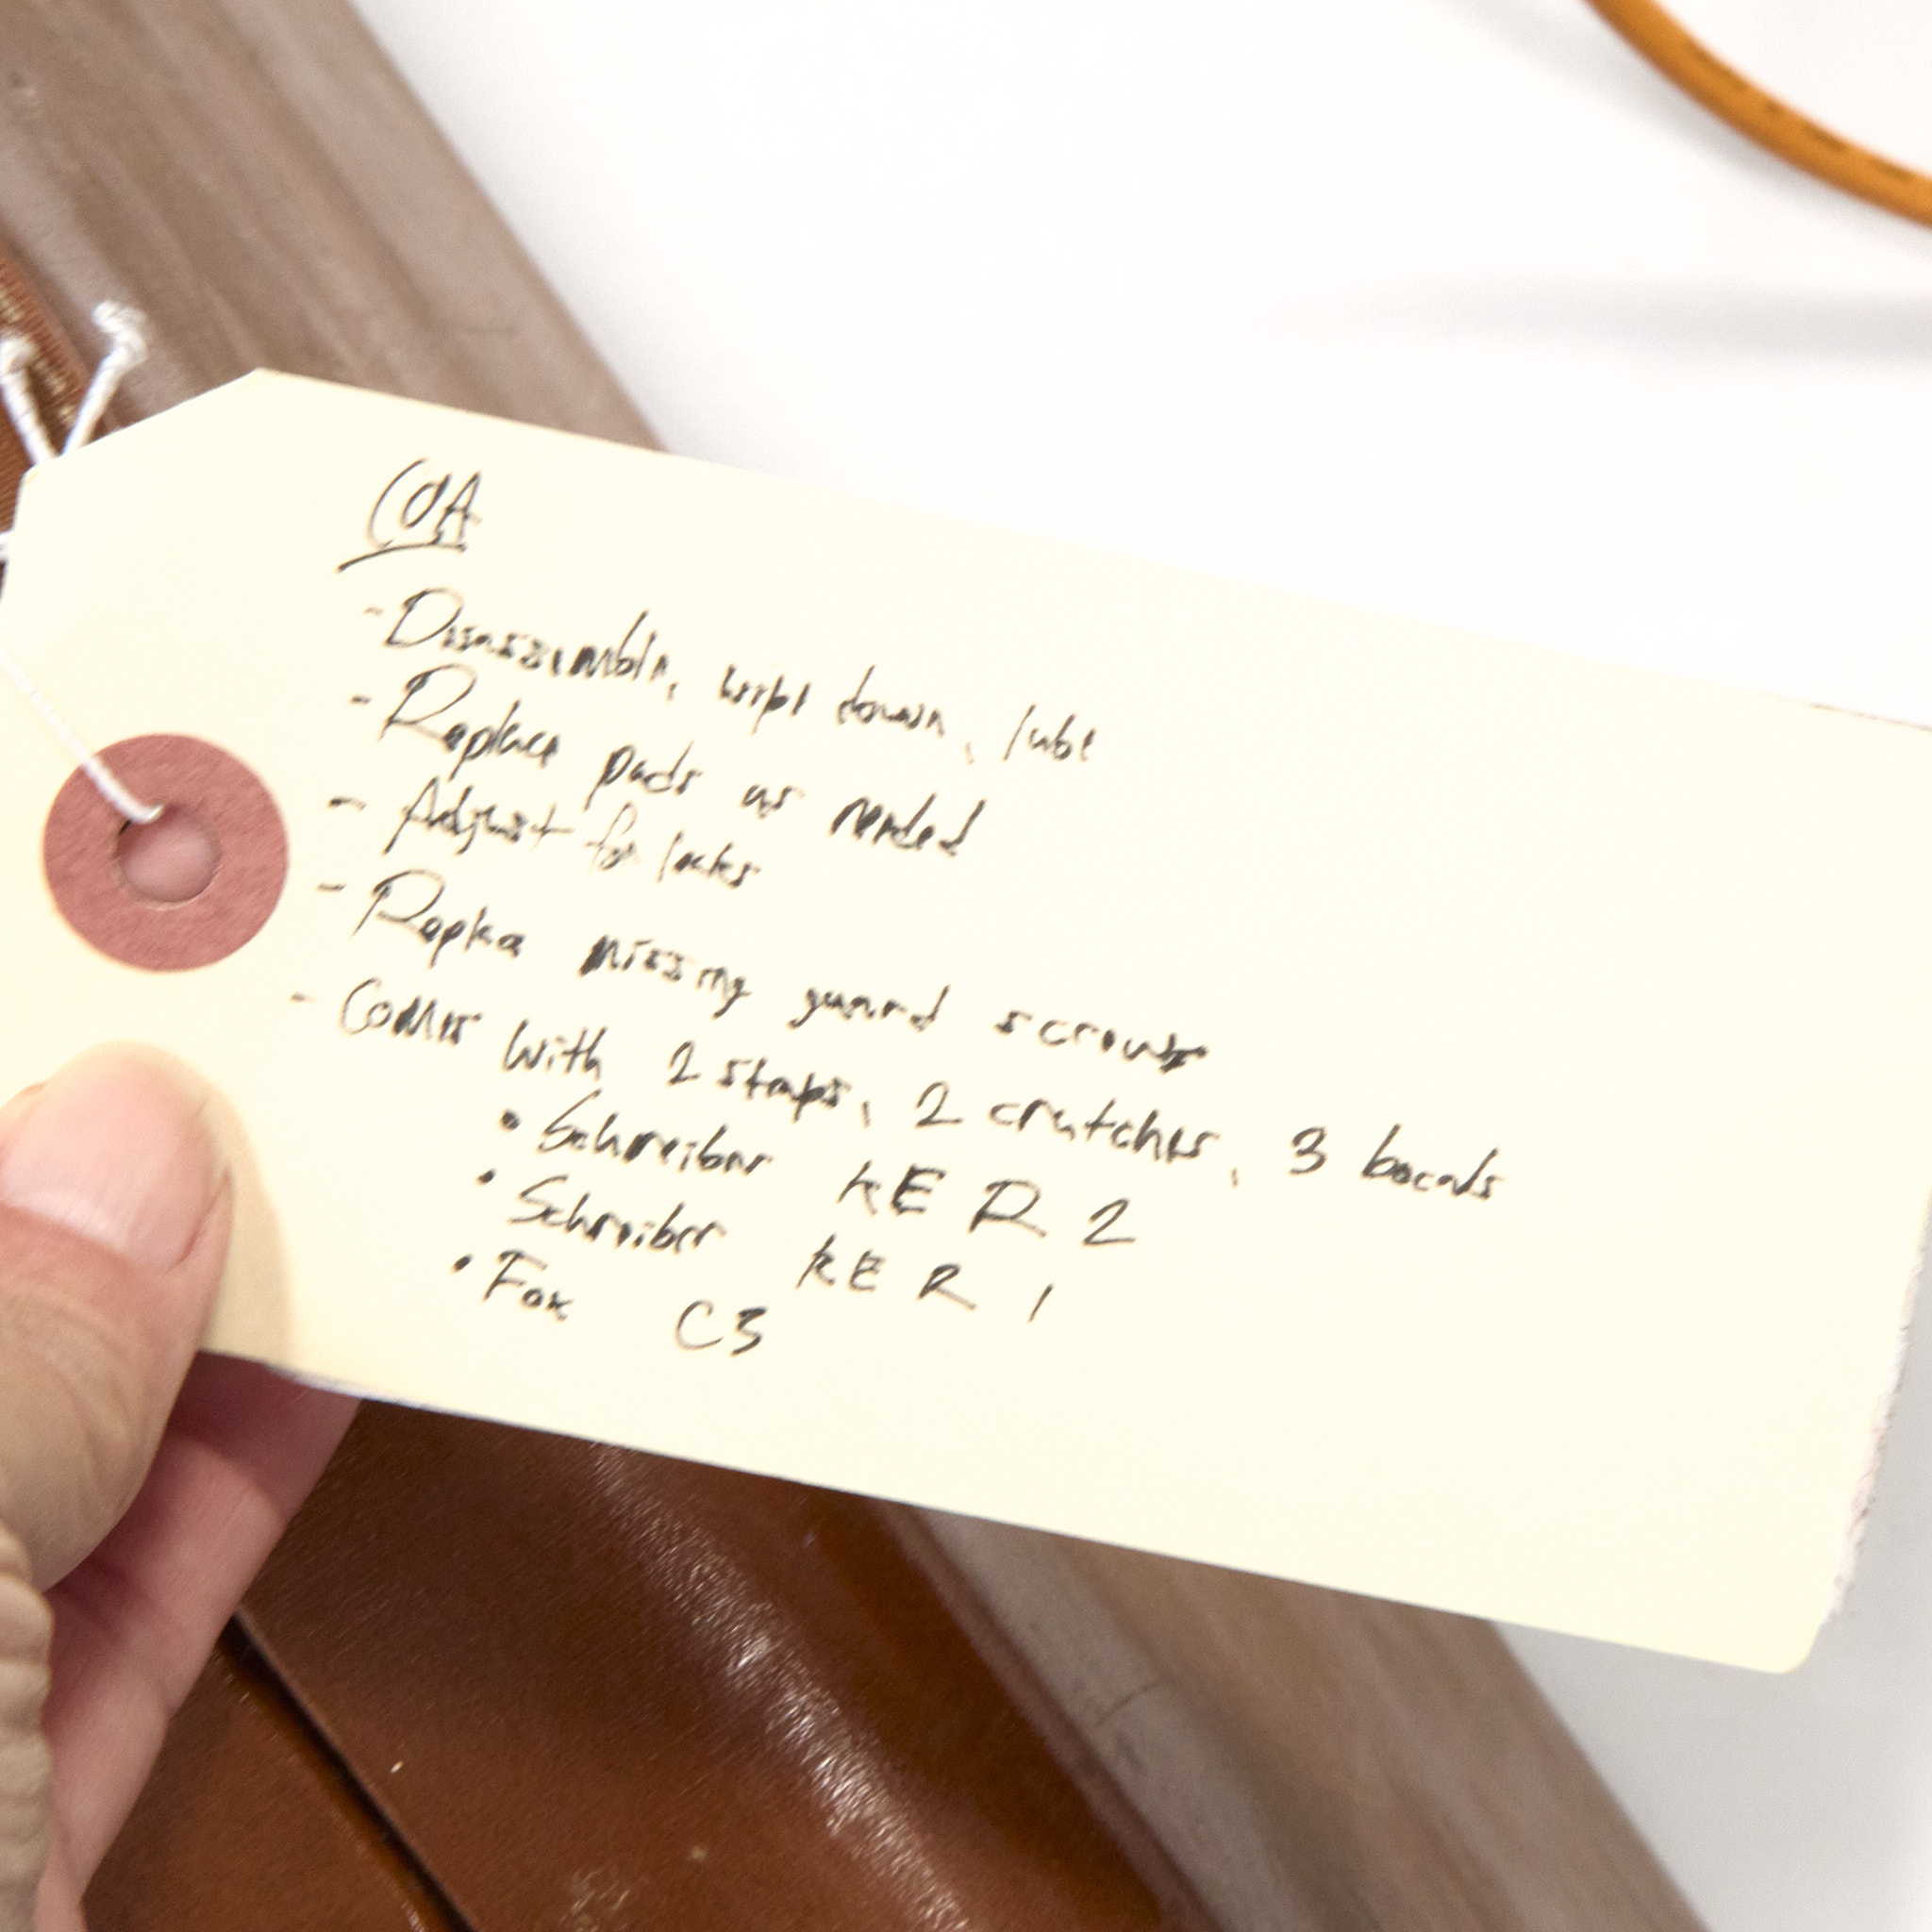 COA
- Disassemble, wipe down, lube
- Replace pads as needed
- Adjust for leaks
- Replace missing guard screws
- Comes with 2 straps, 2 crutches, 3 bocals
• Schreiber KE R 2
• Schreiber KE R 1
• Fox C3